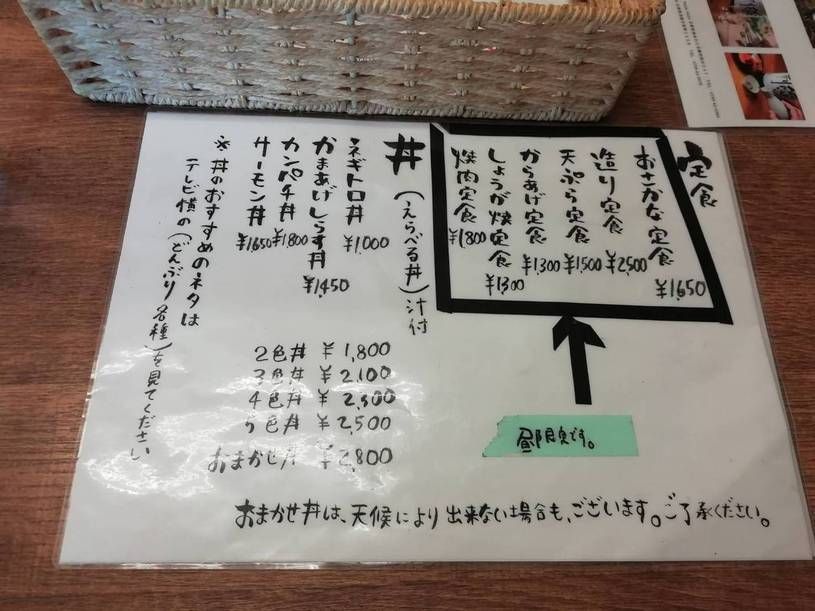 定食
おさかな定食 ¥1,650
造り定食 ¥2,500
天ぷら定食 ¥1,500
からあげ定食 ¥1,300
しょうが焼定食 ¥1,300
焼肉定食 ¥1,800
昼限定です。
丼(えらべる丼)汁付
ネギトロ丼 ¥1,000
かまあげしらす丼 ¥1,450
カンパチ丼 ¥1,800
サーモン丼 ¥1,650
※丼のおすすめのネタは
テレビ横の(どんぶり各種)を見てください
2色丼 ¥1,800
3色丼 ¥2,100
4色丼 ¥2,300
5色丼 ¥2,500
おまかせ丼 ¥2,800
おまかせ丼は、天候により出来ない場合も、ございます。ご了承ください。